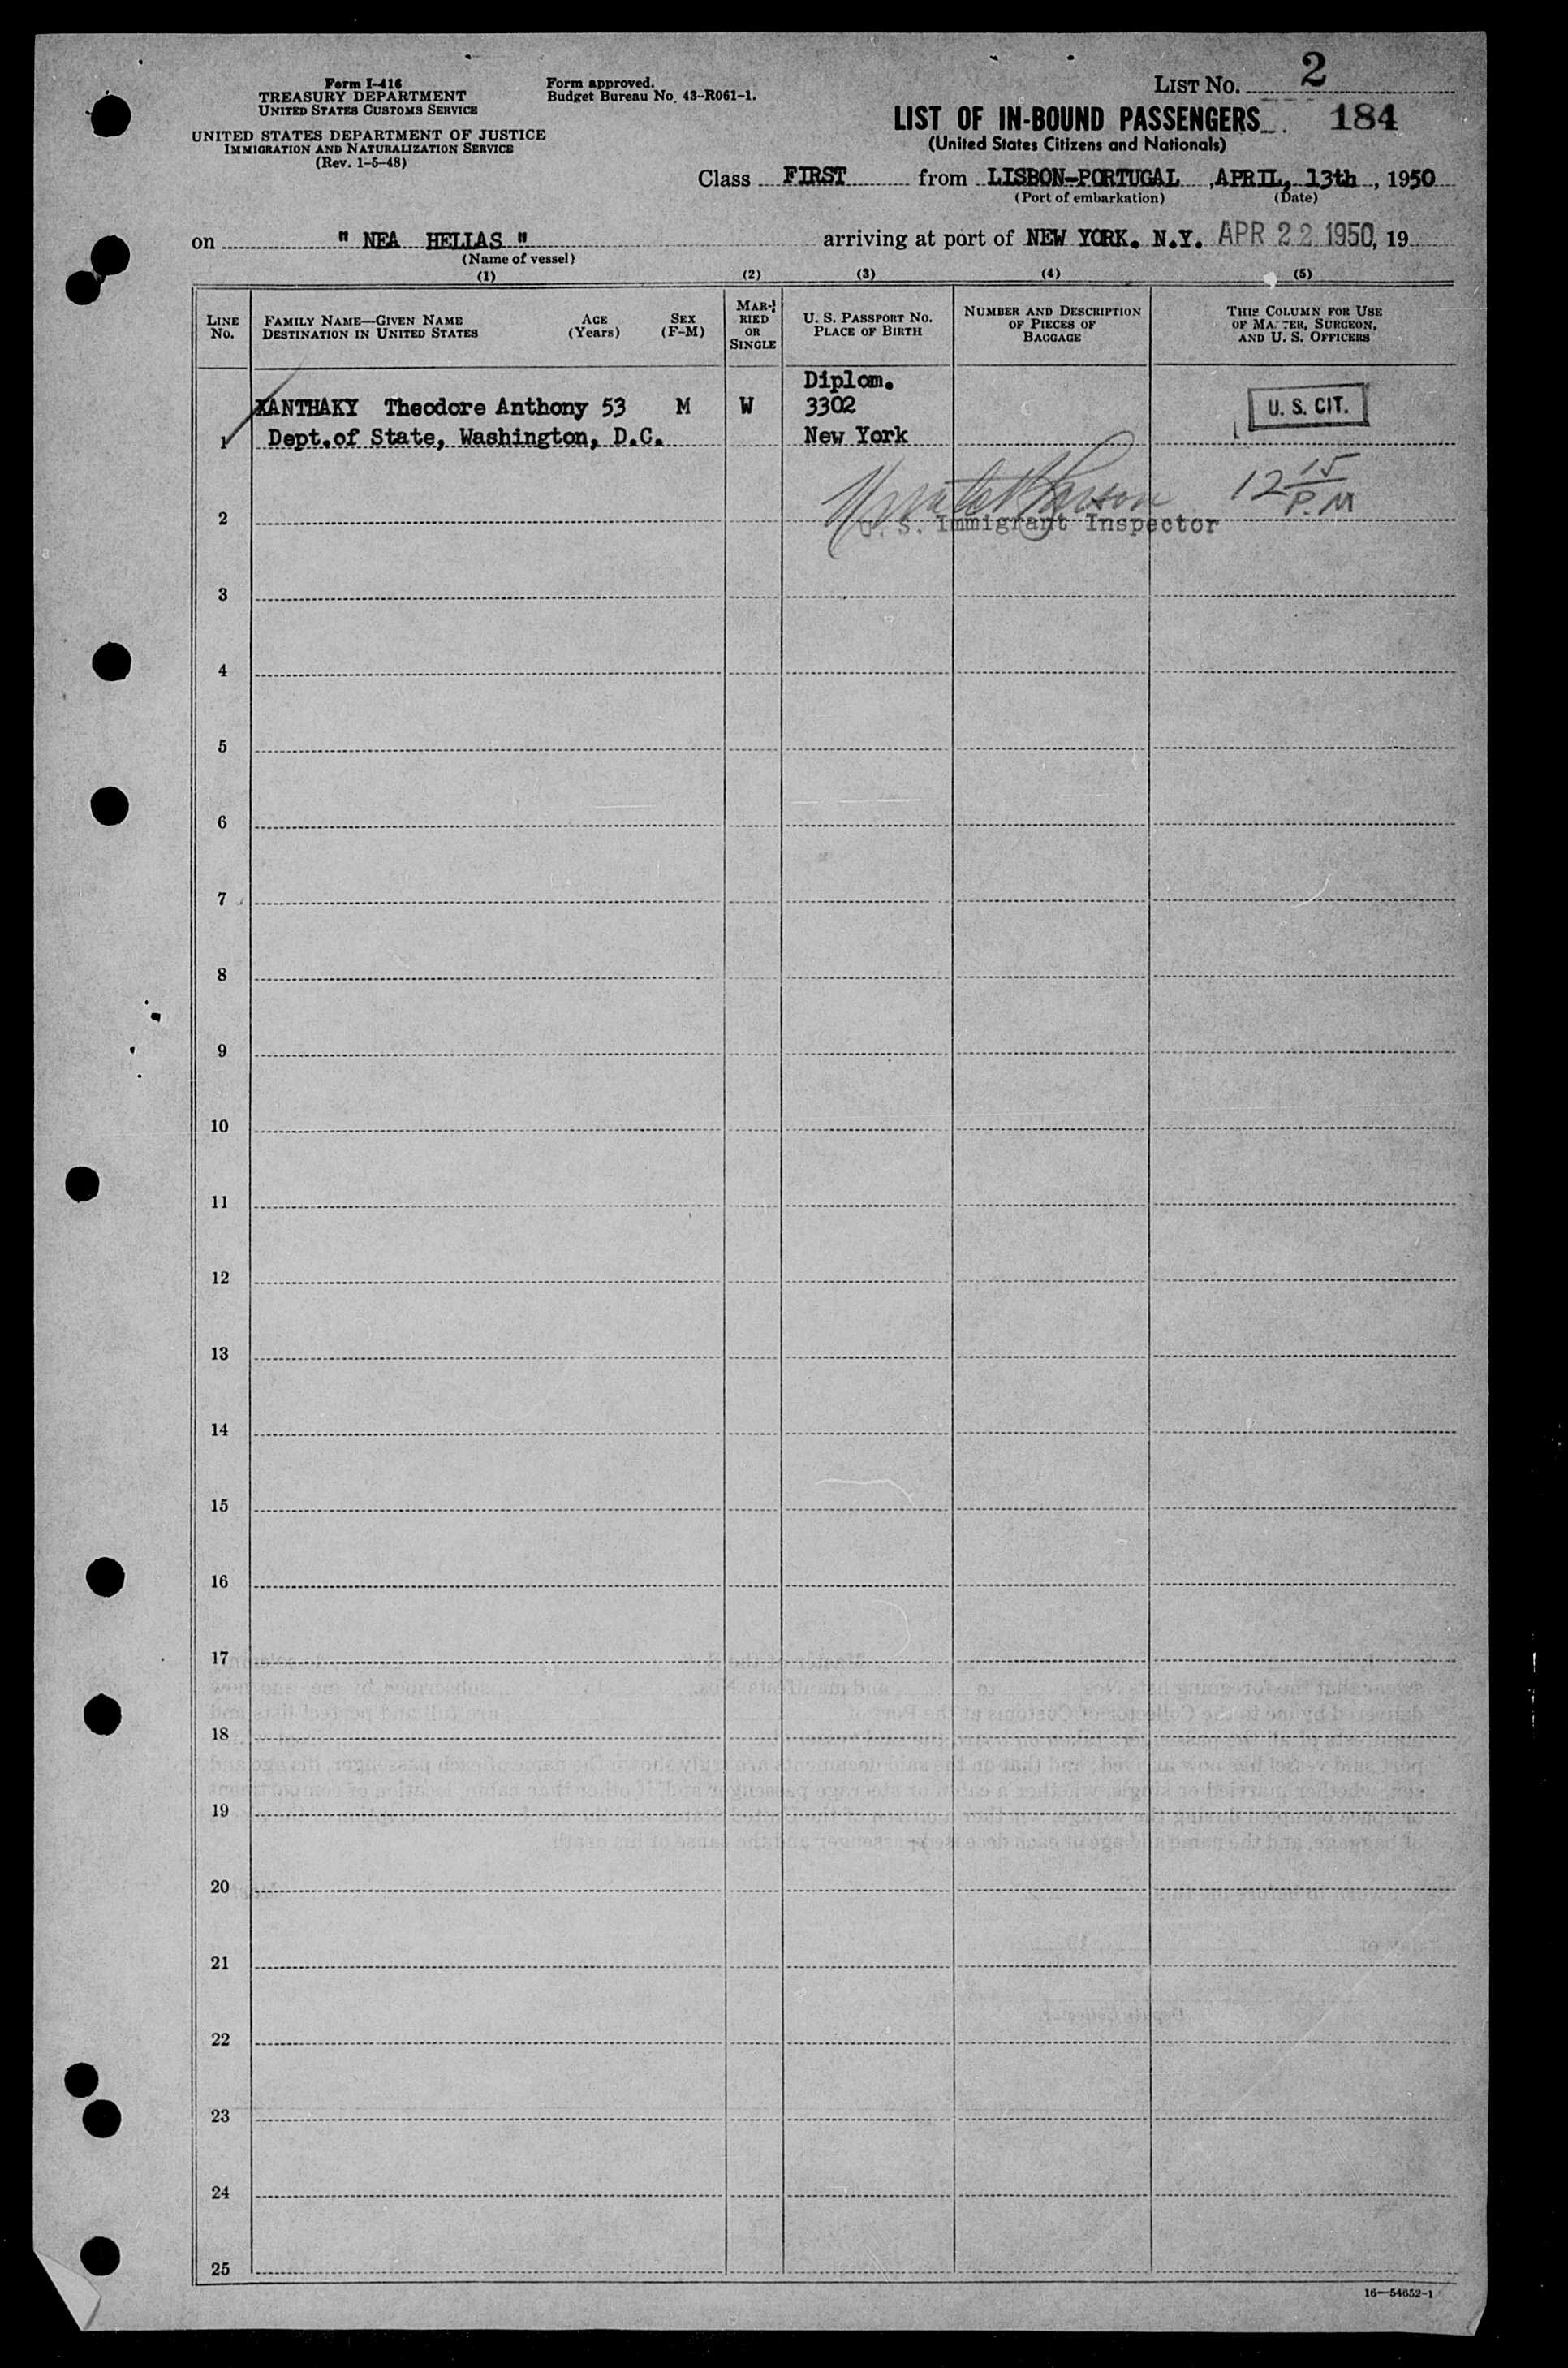 Form I-416
TREASURY DEPARTMENT
UNITED STATES CUSTOMS SERVICE
UNITED STATES DEPARTMENT OF JUSTICE
IMMIGRATION AND NATURALIZATION SERVICE
(Rev. 1-5-48)
Form approved.
Budget Bureau No. 43-R061-1.
LIST NO. 2
LIST OF IN-BOUND PASSENGERS 184
(United States Citizens and Nationals)
Class FIRST from LISBON-PORTUGAL , APRIL, 13th , 1950
(Port of embarkation) (Date)
on " NEA HELLAS " arriving at port of NEW YORK. N.Y. APR 22 1950, 19
(Name of vessel)
(1) (2) (3) (4) (5)
LINE No.
FAMILY NAME—GIVEN NAME
DESTINATION IN UNITED STATES
AGE
(Years)
SEX
(F-M)
MAR-
RIED
OR
SINGLE
U. S. PASSPORT NO.
PLACE OF BIRTH
NUMBER AND DESCRIPTION
OF PIECES OF
BAGGAGE
THIS COLUMN FOR USE
OF MASTER, SURGEON,
AND U. S. OFFICERS
Diplom.
XANTHAKY Theodore Anthony 53 M W 3302 U. S. CIT.
1 Dept.of State, Washington, D.C. New York
12 15 P.M
2
U. S. Immigrant Inspector
3
4
5
6
7
8
9
10
11
12
13
14
15
16
17
18
19
20
21
22
23
24
25
16—54652-1